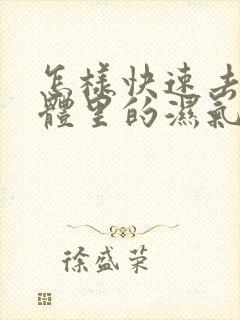 怎樣快速去
體里的濕氣
徐盛荣